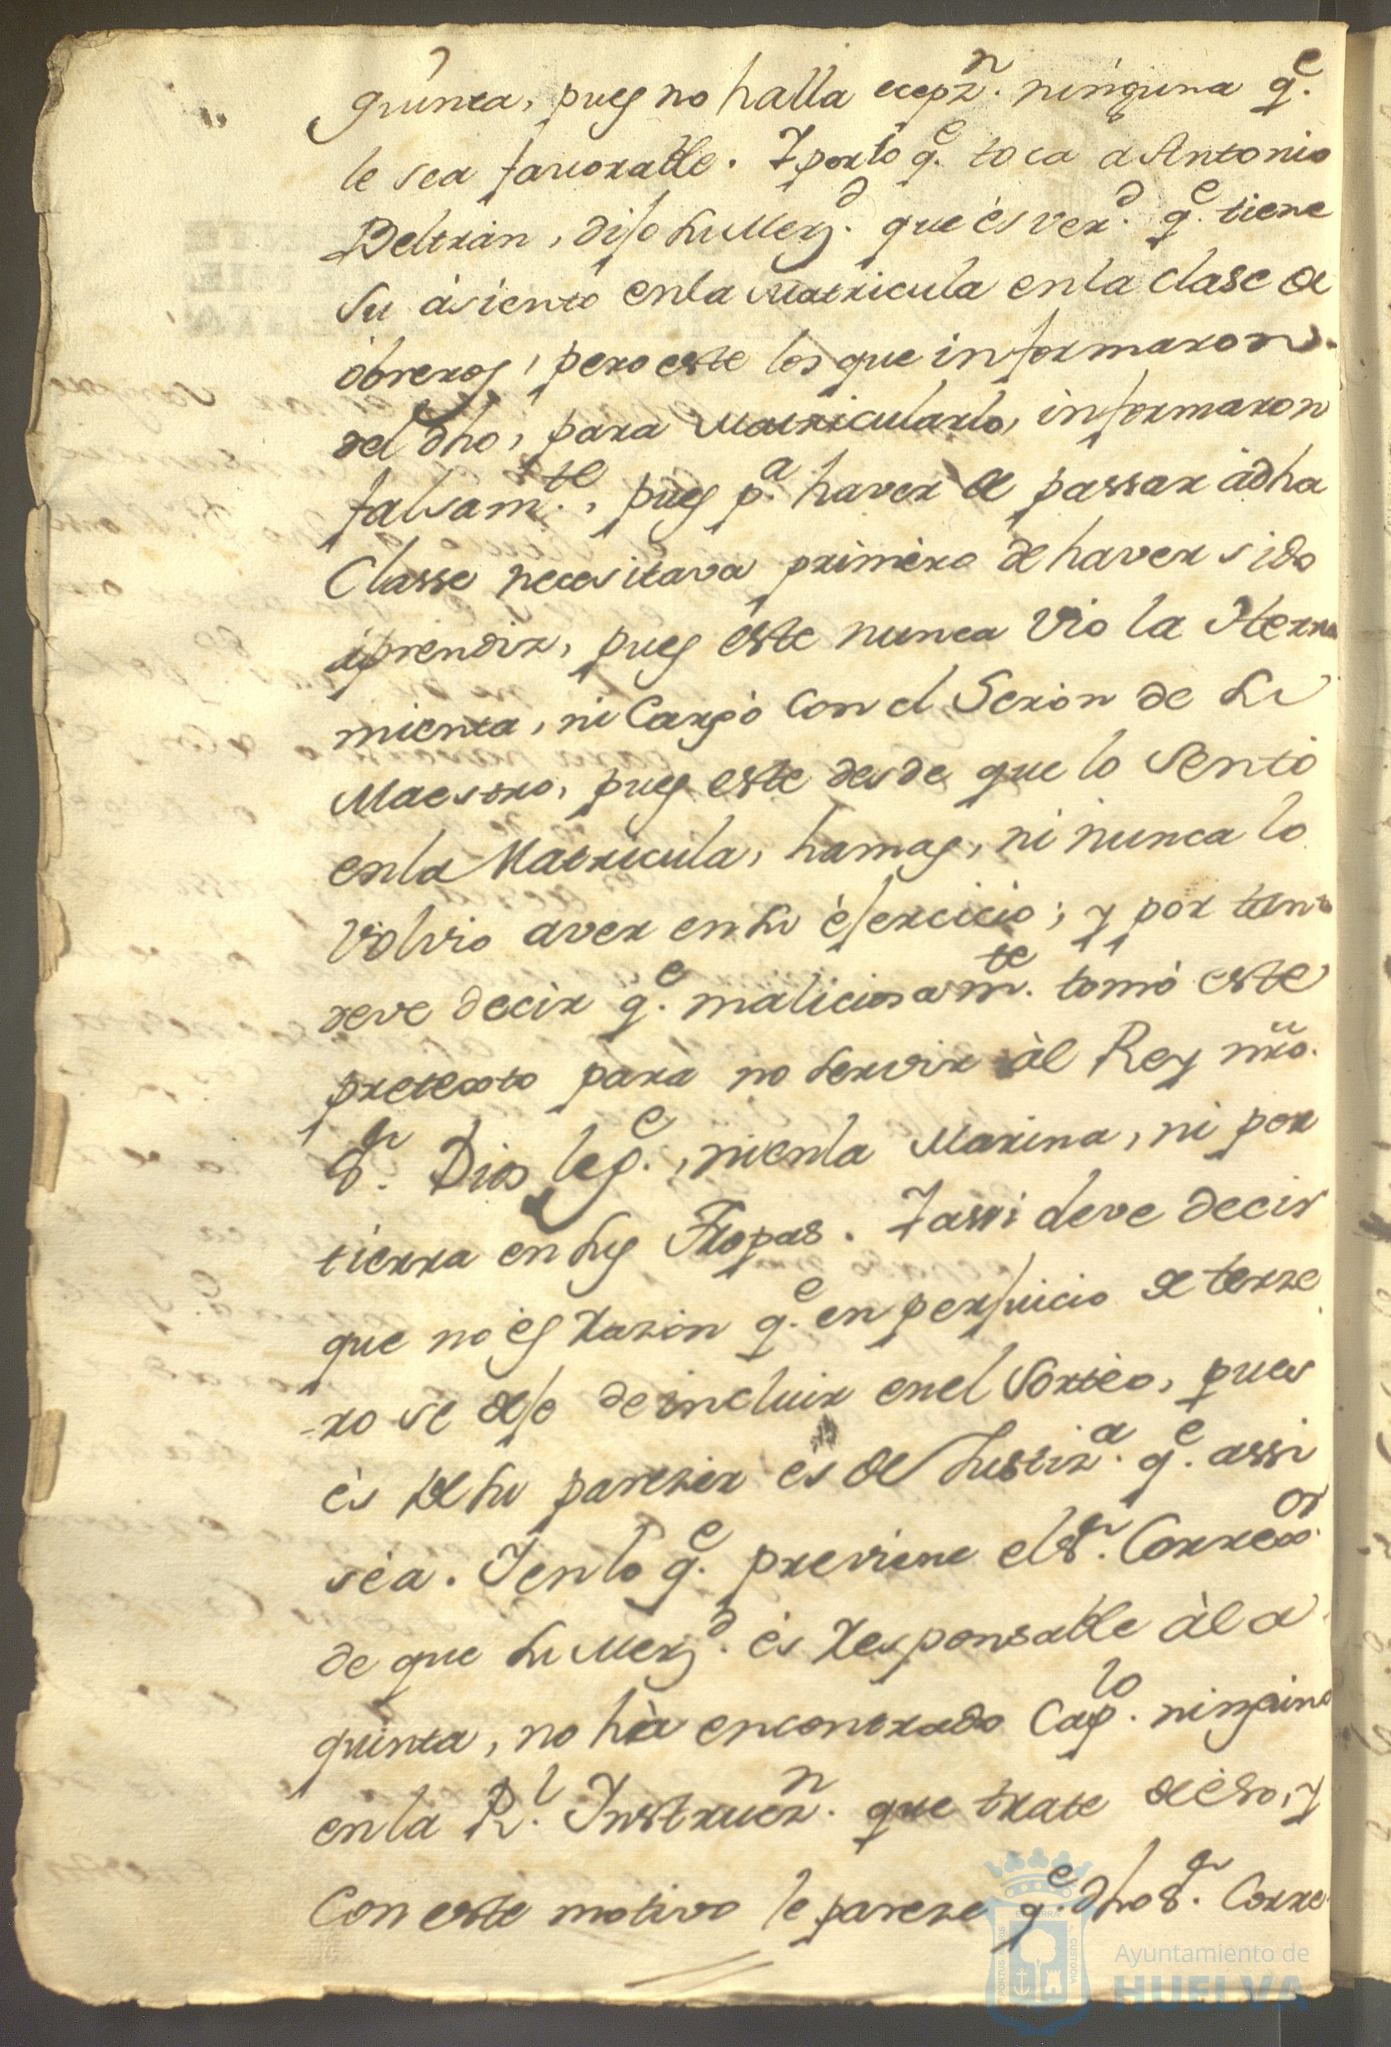 quinta, pues no halla ecepzn. ninguna qe.
le sea favorable. Y por lo qe. toca a Antonio
Beltrán, dijo su Merzd. que és verd. qe. tiene
su ásiento en la Matricula en la clase de
óbreros, pero este los que informaron
del dho, para Matricularlo, informaron
falsamte., pues pa. haver de passar ádha
Classe necesitava primèro de haver sido
áprendiz, pues éste nunca vio la Herra
mienta, ni Cargó con el Serón de su
Maestro, pues este desde que lo Sentó
en la Matricula, hamas, ni nunca lo
volvio aver en su èjercicio; y por tanto
deve decir qe. maliciosamte. tomó este
pretexto para no servir ál Rey nro.
Sr. Dios lege., ni en la Marina, ni por
tierra en sus Tropas. Y assi deve decir
que no és razón qe. en perjuicio de terze
-ro se deje de incluir en el Sortéo, pues
és de su parezer és de Justiza. qe. assi
séa. Y en lo qe. previene el Sr. Correxor.
de que su Merzd. és responsable ál a
quinta, no há encontrado Caplo. ninguno
en la Rl. Instruczn. que trate de éso, y
Con este motivo le pareze qe. dho Sr. Corre
Ayuntamiento de
HUELVA